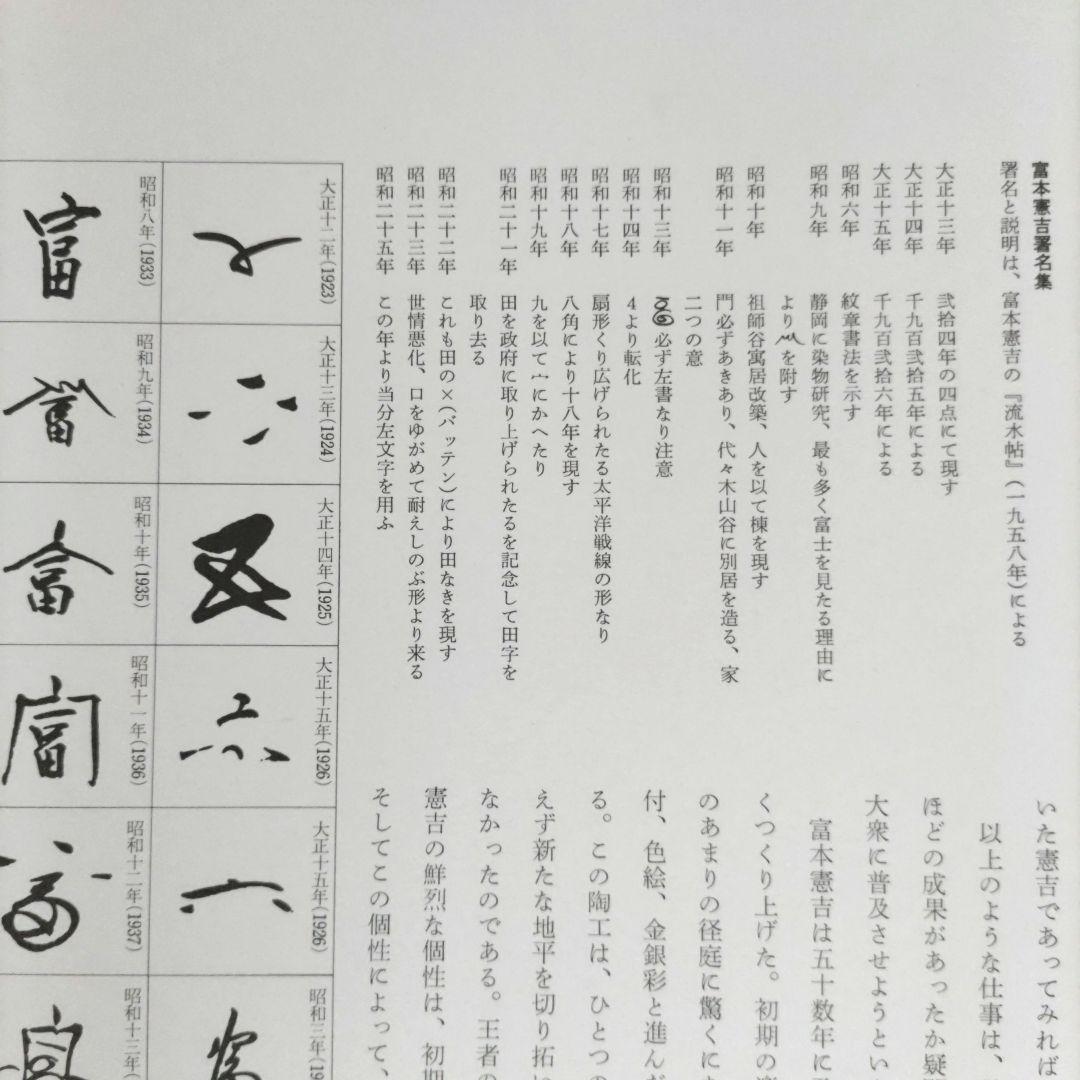 富本憲吉署名集
署名と説明は、富本憲吉の『流水帖』(一九五八年)による
大正十三年 弐拾四年の四点にて現す
大正十四年 千九百弐拾五年による
大正十五年 千九百弐拾六年による
昭和六年 紋章書法を示す
昭和九年 静岡に染物研究、最も多く富士を見たる理由に
よりを附す
昭和十年 祖師谷寓居改築、人を以て棟を現す
昭和十一年 門必ずあきあり、代々木山谷に別居を造る、家
二つの意
昭和十三年 必ず左書なり注意
昭和十四年 4より転化
昭和十七年 扇形くり広げられたる太平洋戦線の形なり
昭和十八年 八角により十八年を現す
昭和十九年 九を以て宀にかへたり
昭和二十一年 田を政府に取り上げられたるを記念して田字を
取り去る
昭和二十二年 これも田の×(バッテン)により田なきを現す
昭和二十三年 世情悪化、口をゆがめて耐えしのぶ形より来る
昭和二十五年 この年より当分左文字を用ふ
大正十二年(1923)
大正十三年(1924)
大正十四年(1925)
大正十五年(1926)
大正十五年(1926)
昭和三年(19
昭和八年(1933)
富
昭和九年(1934)
富
昭和十年(1935)
富
昭和十一年(1936)
富
昭和十二年(1937)
昭和十三年(
いた憲吉であってみれば
以上のような仕事は、
ほどの成果があったか疑
大衆に普及させようとい
富本憲吉は五十数年に
くつくり上げた。初期の
のあまりの径庭に驚くに
付、色絵、金銀彩と進んだ
る。この陶工は、ひとつの
えず新たな地平を切り拓い
なかったのである。王者の
憲吉の鮮烈な個性は、初期
そしてこの個性によって、